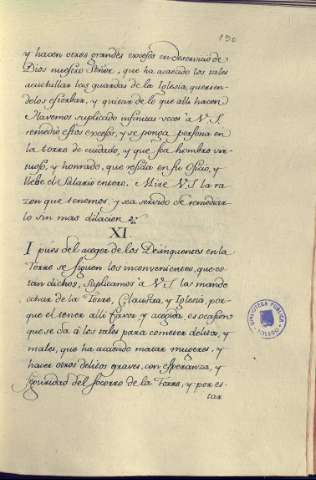 190
y hacen otros grandes excesos en deservicio de
Dios nuestro Señor, que ha acaecido los tales
acuchillar las guardas de la Iglesia, querien-
dolos estorbar, y quitar de lo que alli hacen
Havemos suplicado infinitas veces a V.S.
remedie estos excesos, y se ponga persona en
la torre de cuidado, y que sea hombre vir-
tuoso, y honrado, que resida en su Oficio, y
llebe el Salario entero. Mire V.S la ra-
zon que tenemos y sea servido de remediar-
lo sin mas dilacion
XI
I pues del acoger de los Delinquentes en la
Torre se siguen los inconvenientes, que es-
tan dichos, suplicamos a V.S. los mande
echar de la Torre, Claustra, y Iglesia, por-
que el tener alli favor y acogida, es ocasion
que se da á los tales para cometer delitos, y
males, que ha acaecido matar mugeres, y
hacer otros delitos graves, con esperanza, y
seguridad del socorro de la Torre, y por es-
tar
BIBLIOTECA PUBLICA
TOLEDO